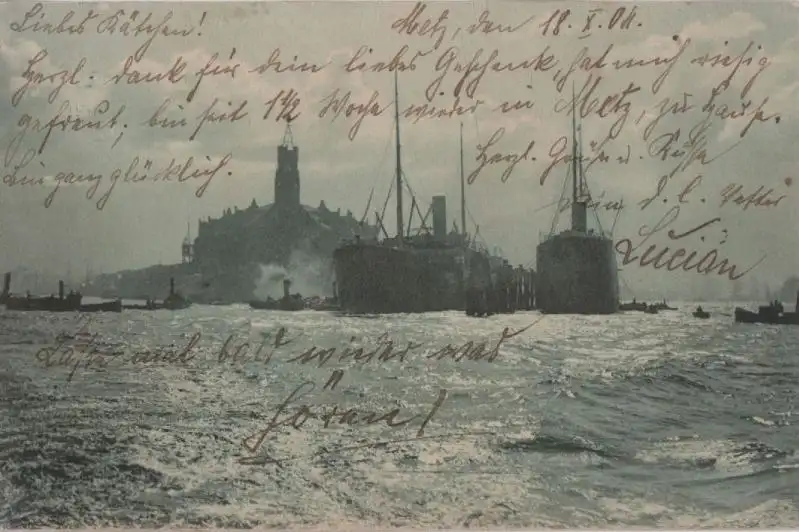 Liebes Kätchen!
Metz, den 18. X. 04.
Herzl. dank für dein liebes Geschenk, hat mich riesig
gefreut, bin seit 1 1/2 Woche wieder in Metz, zu Hause.
bin ganz glücklich.
Herzl. Grüße u. Küsse
dein d. l. Vetter
Lucian
Lasse mal bald wieder was
hören!